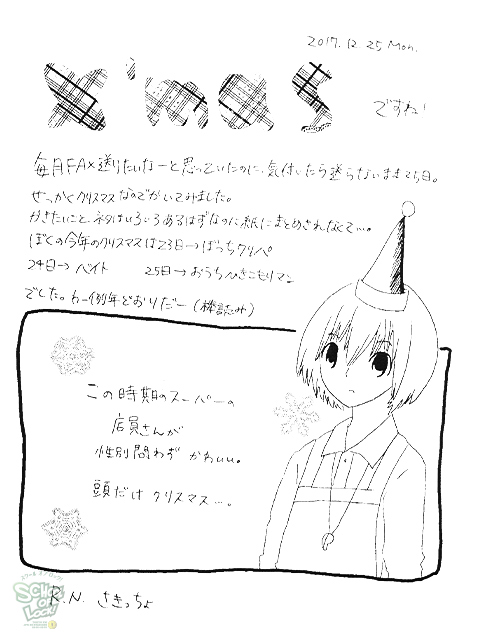 2017.12.25 Mon.
x'mas ですね!
毎月FAX送りたいなーと思っていたのに、気付いたら送らないまま25日。
せっかくクリスマスなのでかいてみました。
かきたいこと、ネタはいろいろあるはずなのに紙にまとめきれなくて…。
ぼくの今年のクリスマスは23日→ぼっちクリパ
24日→バイト 25日→おうちひきこもりマン
でした。わー例年どおりだー(棒読み)
この時期のスーパーの
店員さんが
性別問わず かわいい。
頭だけ クリスマス…。
R.N. さきっちょ
SCHOOL OF LOCK!